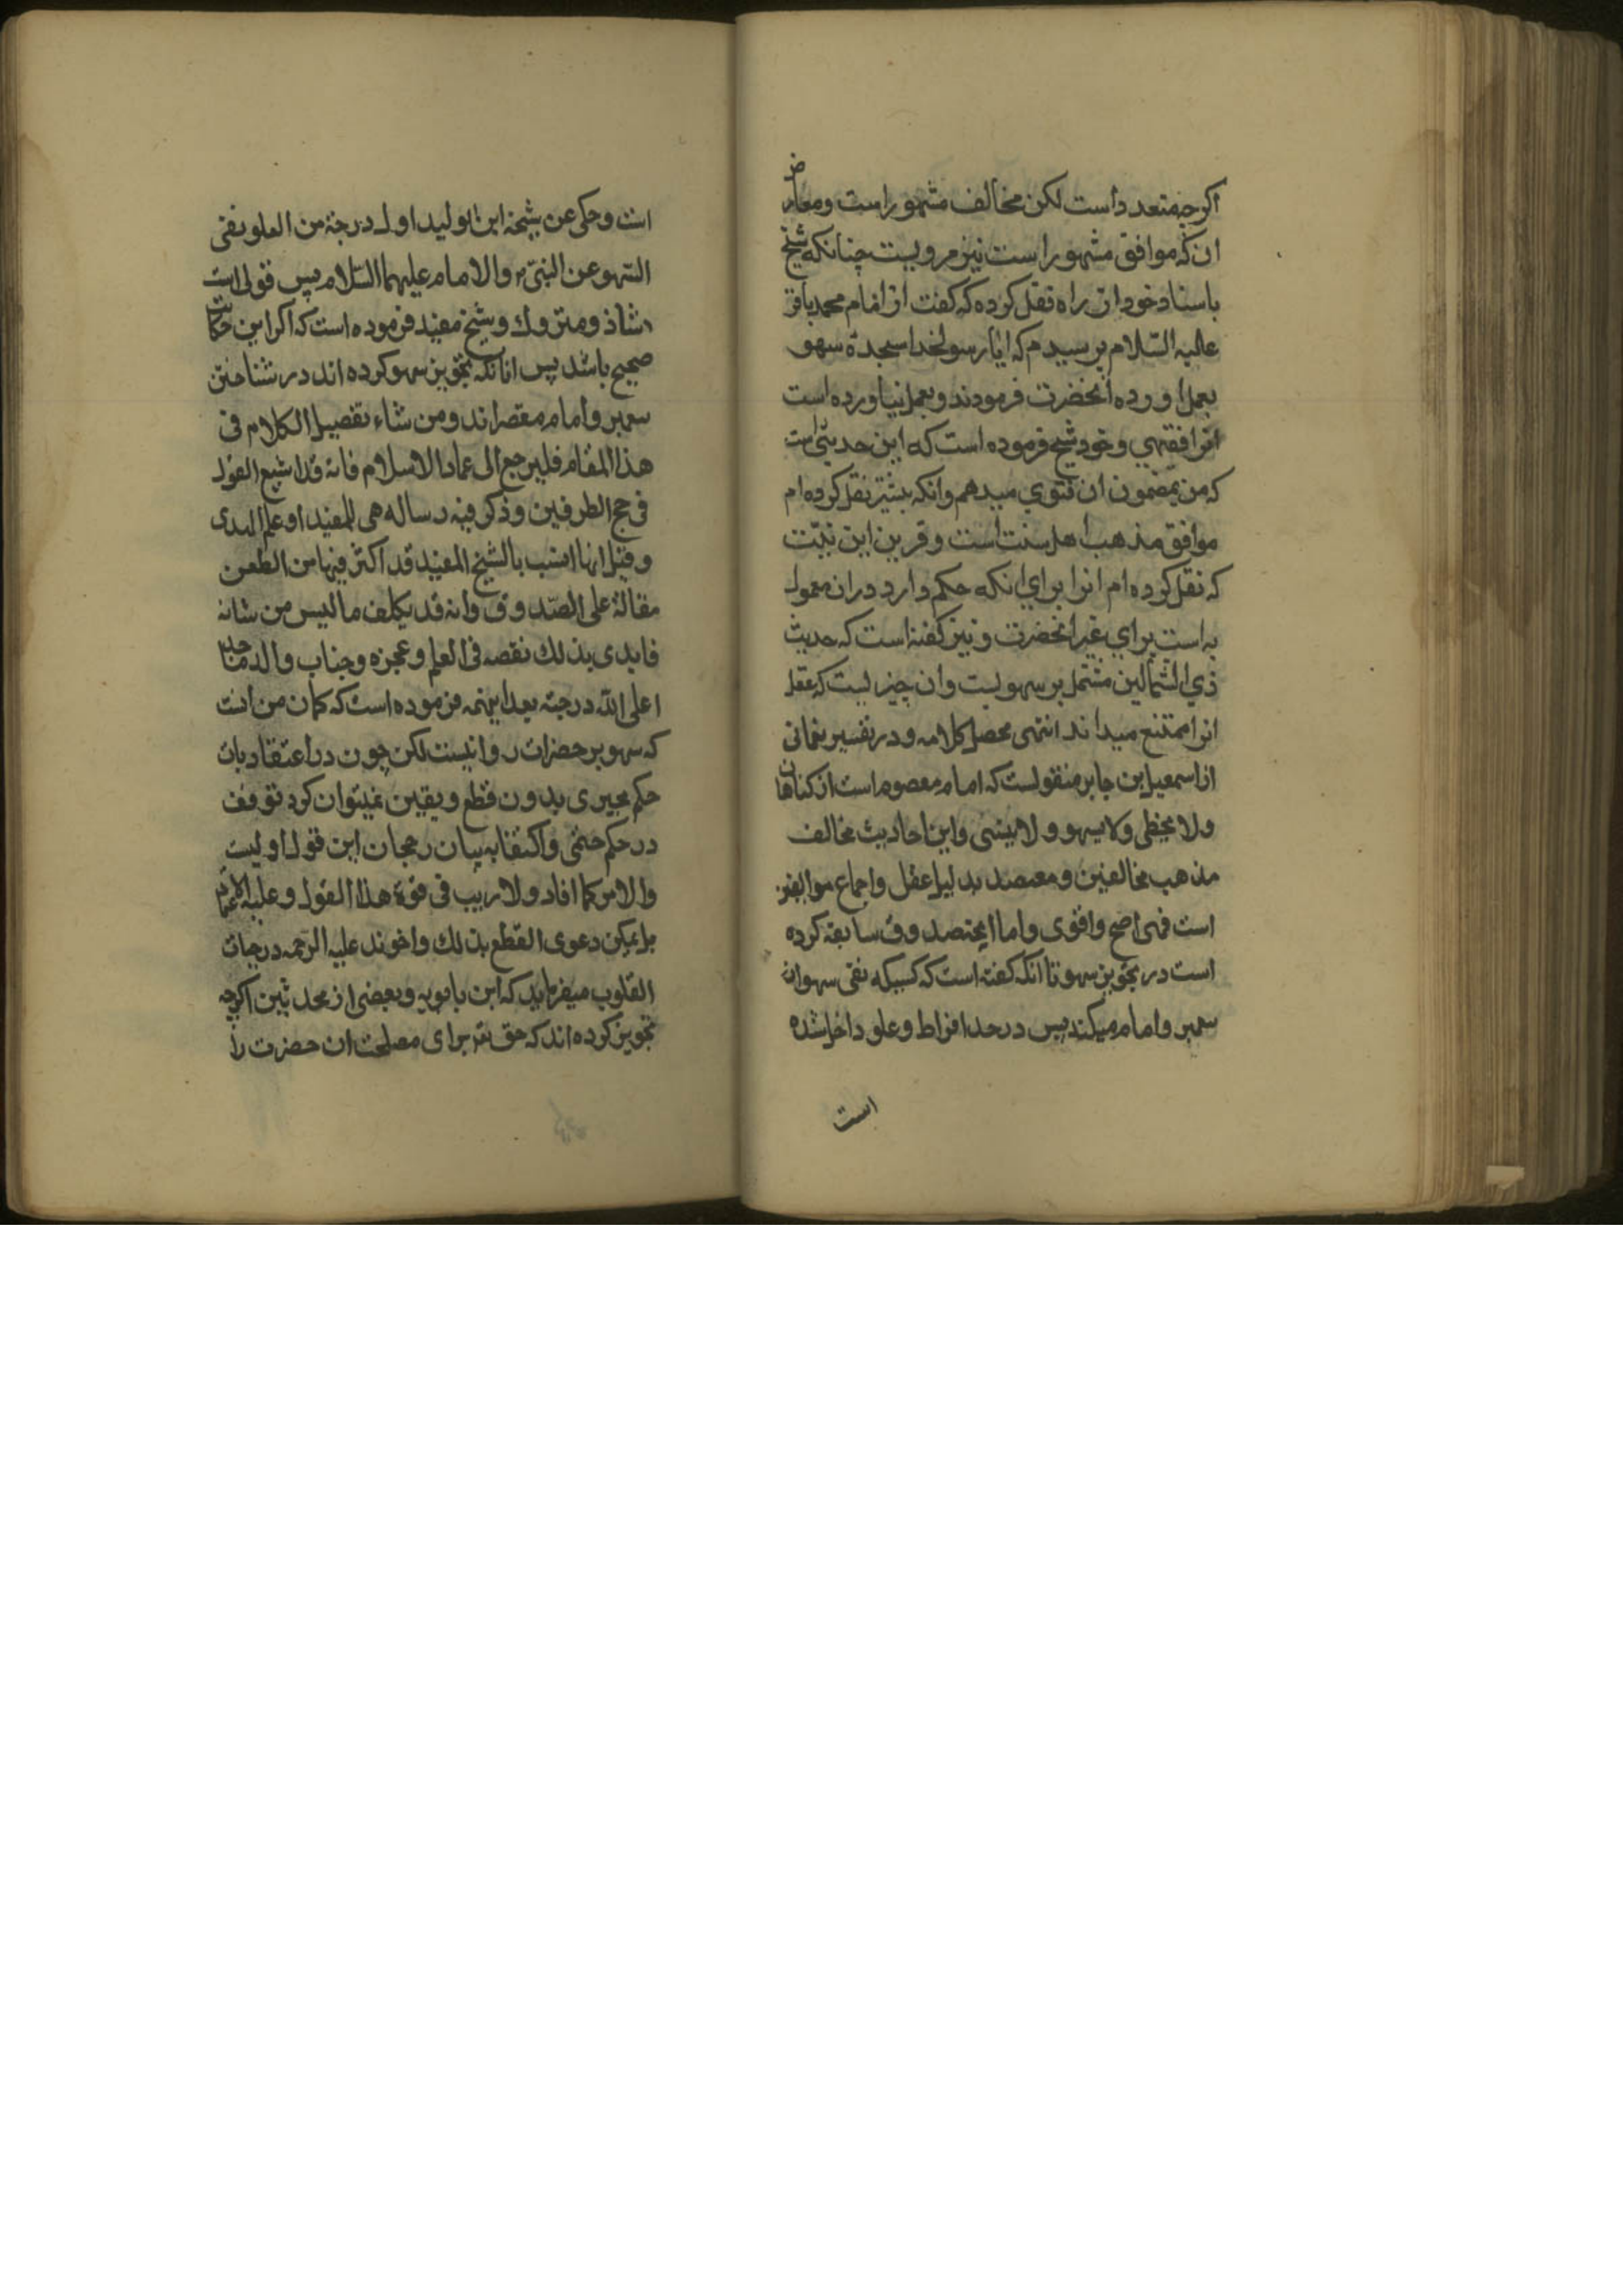 اکرچه متعدد است لکن مخالف مشهور است ومعارض
ان که موافق مشهور است نیز مرویست چنانکه شیخ
باسناد خود از زراره نقل کرده که کفت از امام محمد باقر
علیه السّلام پرسیدم که ایا رسولخدا سجدهٔ سهو
بعمل اورده انحضرت فرمودند و بعمل نیاورده است
انرا فقیهی و خود شیخ فرموده است که این حدیثی است
که من بمضمون ان فتوی میدهم وانکه بیشتر نقل کرده ام
موافق مذهب اهل سنت است و قرین این نیّت
که نقل کرده ام انرا برای انکه حکم وارد دران معمول
به است برای غیر انحضرت و نیز کفته است که حدیث
ذی الشمالین مشتمل بر سهویست وان چیزیست که عقل
انرا ممتنع میداند انتهی محصل کلامه و در تفسیر نعمانی
از اسمعیل ابن جابر منقولست که امام معصوم است از کناهان
ولا یخطی ولا یسهو ولا ینسی واین احادیث مخالف
مذهب مخالفین و معتضد بدلیل عقل واجماع موالفین
است فهی اصح واقوی واما ابن صدوق سابقه کرده
است در تجویز سهو تا انکه کفته است که کسیکه نفی سهو از
پیغمبر وامام میکند پس در حد افراط وغلو داخل شده
است
است وحکی عن شیخه ابن الولید اول درجة من الغلو نفی
السّهو عن النبیّ والامام علیهما السّلام پس قولی است
شاذ و متروک و شیخ مفید فرموده است که اکر این حکایت
صحیح باشد پس انانکه تجویز سهو کرده اند در شناختن
پیغمبر وامام مقصراند و من شاء تفصیل الکلام فی
هذا المقام فلیرجع الی عماد الاسلام فانه قد اشبع القول
فی حجج الطرفین وذکر فیه رساله هی للمفید او علم الهدی
و قیل انها انسب بالشیخ المفید قد اکثر فیها من الطعن
مقالة علی الصّدوق وانه قد یکلف ما لیس من شانه
فابدی بذلک نقصه فی العلم وعجزه وجناب والد ماجد
اعلی الله درجته بعد اینهمه فرموده است که کمان من انست
که سهو بر حضرات روا نیست لکن چون در اعتقادیات
حکم بچیزی بدون قطع ویقین نمیتوان کرد توقف
در حکم حتمی واکتفا به بیان رجحان این قول اولیست
والامر کما افاد ولا ریب فی قوة هذا القول وعلیه الاعتماد
بل یمکن دعوی القطع بذلک واخوند علیه الرّحمه در حیات
القلوب میفرماید که ابن بابویه وبعضی از محدثین اکرچه
تجویز کرده اند که حق تعالی برای مصلحت ان حضرت را